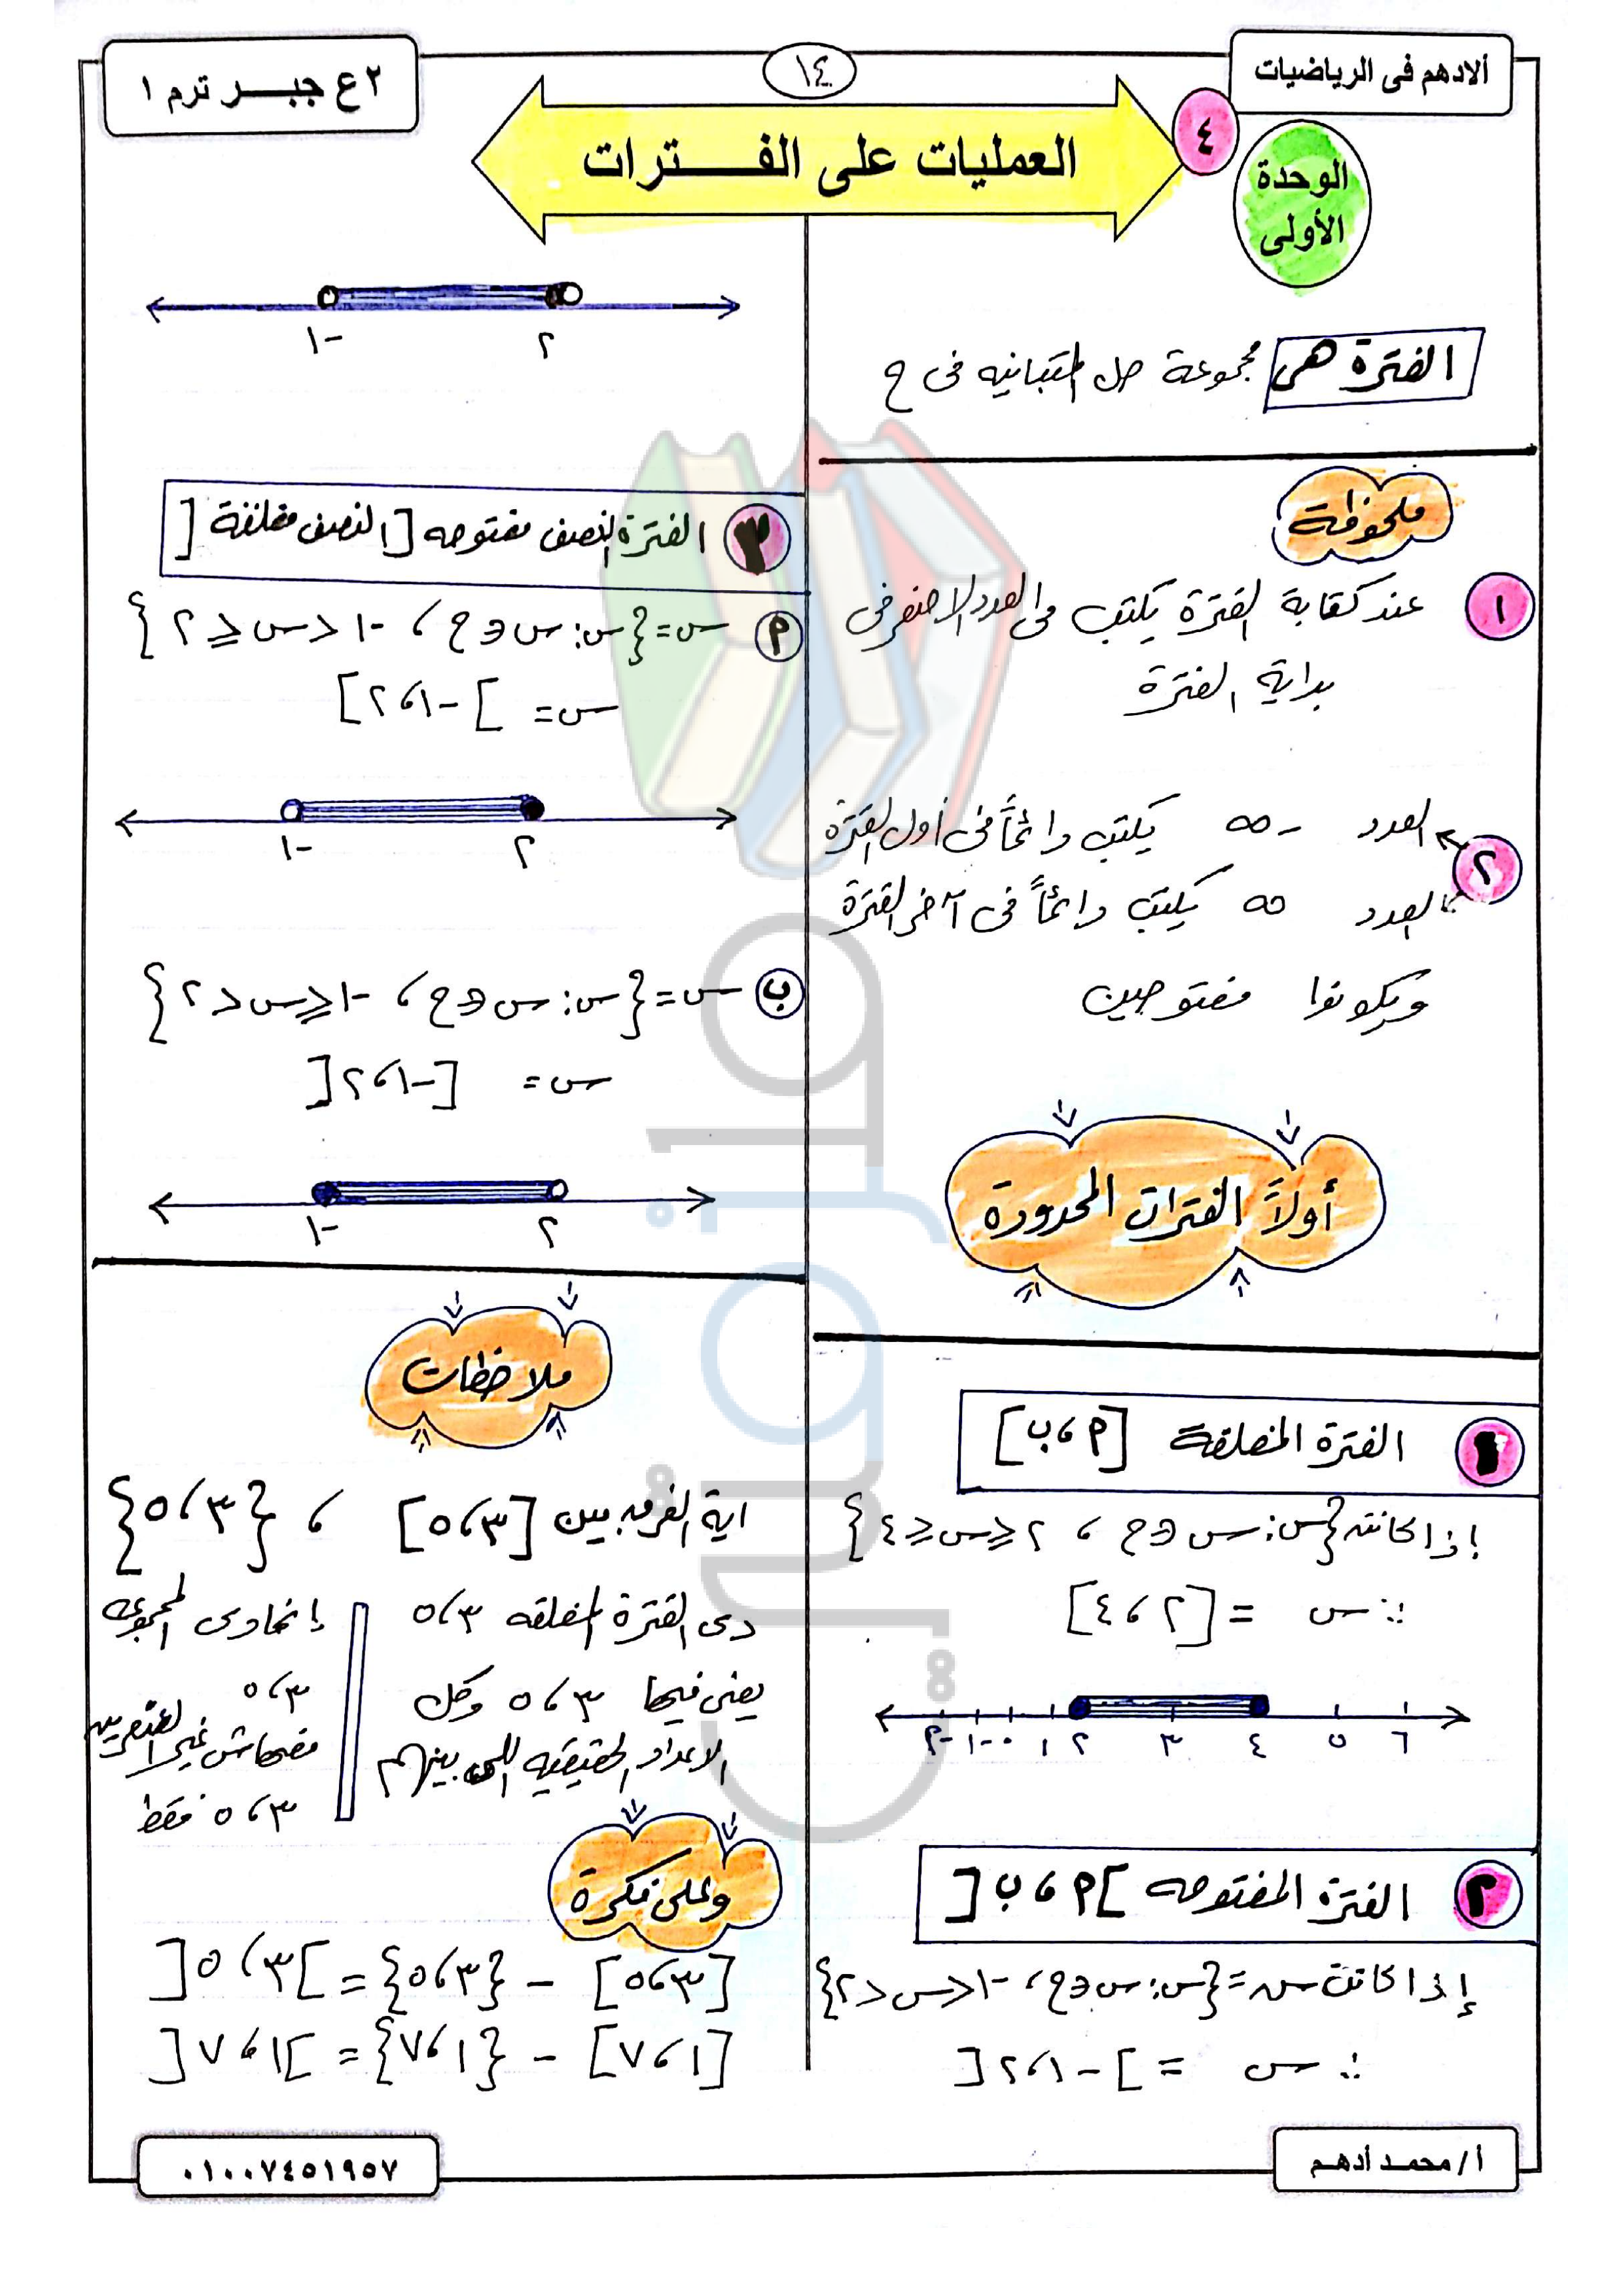 ألادهم فى الرياضيات
١٤
٢ ع جبـــر ترم ١
٤
العمليات على الفـــترات
الوحدة
الأولى
الفترة هى مجموعة حل المتباينه فى ح
ملحوظة
١ عند كتابة الفترة يكتب العدد الاصغر فى
بداية الفترة
٢ العدد -∞ يكتب دائماً فى أول الفترة
العدد ∞ يكتب دائماً فى آخر الفترة
ويكونوا مفتوحين
أولاً الفترات المحدودة
١ الفترة المغلقة [أ ، ب]
إذا كانت {س: س ∋ ح ، ٢ ≤ س ≤ ٤}
∴ س = [٢ ، ٤]
-٢ -١ ٠ ١ ٢ ٣ ٤ ٥ ٦
٢ الفترة المفتوحه ]أ ، ب[
إذا كانت س = {س: س ∋ ح ، -١ < س < ٢}
∴ س = ]-١ ، ٢[
-١ ٢
٣ الفترة النصف مفتوحه [النصف مغلقة[
أ س = {س: س ∋ ح ، -١ < س ≤ ٢}
س = ]-١ ، ٢]
-١ ٢
ب س = {س: س ∋ ح ، -١ ≤ س < ٢}
س = [-١ ، ٢[
-١ ٢
ملاحظات
اية الفرق بين [٣ ، ٥] ، {٣ ، ٥}
دى الفترة المغلقه ٣ ، ٥
يعنى فيها ٣ ، ٥ وكل
الاعداد الحقيقيه اللى بينهم
إنما دى المجموعه
٣ ، ٥
مفيهاش غير العنصرين
٣ ، ٥ فقط
وعلى فكرة
[٣ ، ٥] - {٣ ، ٥} = ]٣ ، ٥[
[١ ، ٧] - {١ ، ٧} = ]١ ، ٧[
أ / محمد أدهم
٠١٠٠٧٤٥١٩٥٧